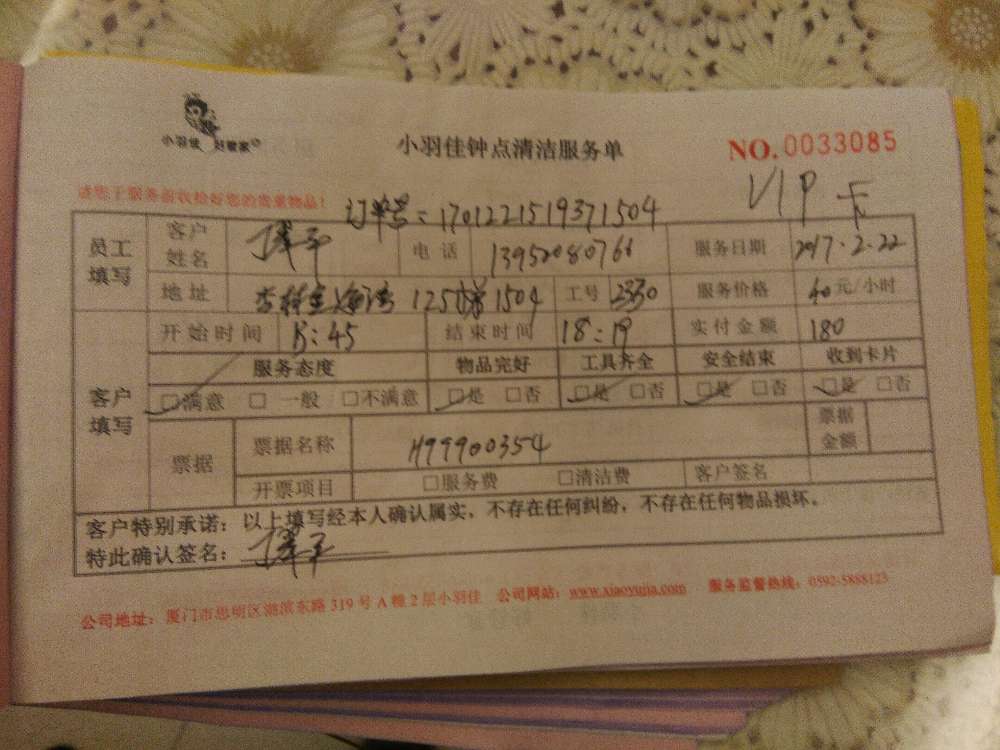 小羽佳 好管家
小羽佳钟点清洁服务单
NO. 0033085
请您于服务前收拾好您的贵重物品！
订单号：1701221519371504
VIP 卡
员工填写
客户姓名
电话 13952080766
服务日期 2017.2.22
地址 125 1504
工号 2330
服务价格 40元/小时
客户填写
开始时间 :45
结束时间 18:19
实付金额 180
服务态度 物品完好 工具齐全 安全结束 收到卡片
□满意 □一般 □不满意 □是 □否 □是 □否 □是 □否 □是 □否
票据
票据名称 H99900354
票据金额
开票项目 □服务费 □清洁费 客户签名
客户特别承诺：以上填写经本人确认属实，不存在任何纠纷，不存在任何物品损坏。
特此确认签名：
公司地址：厦门市思明区湖滨东路319号A幢2层小羽佳 公司网站：www.xiaoyujia.com 服务监督热线：0592-5888123